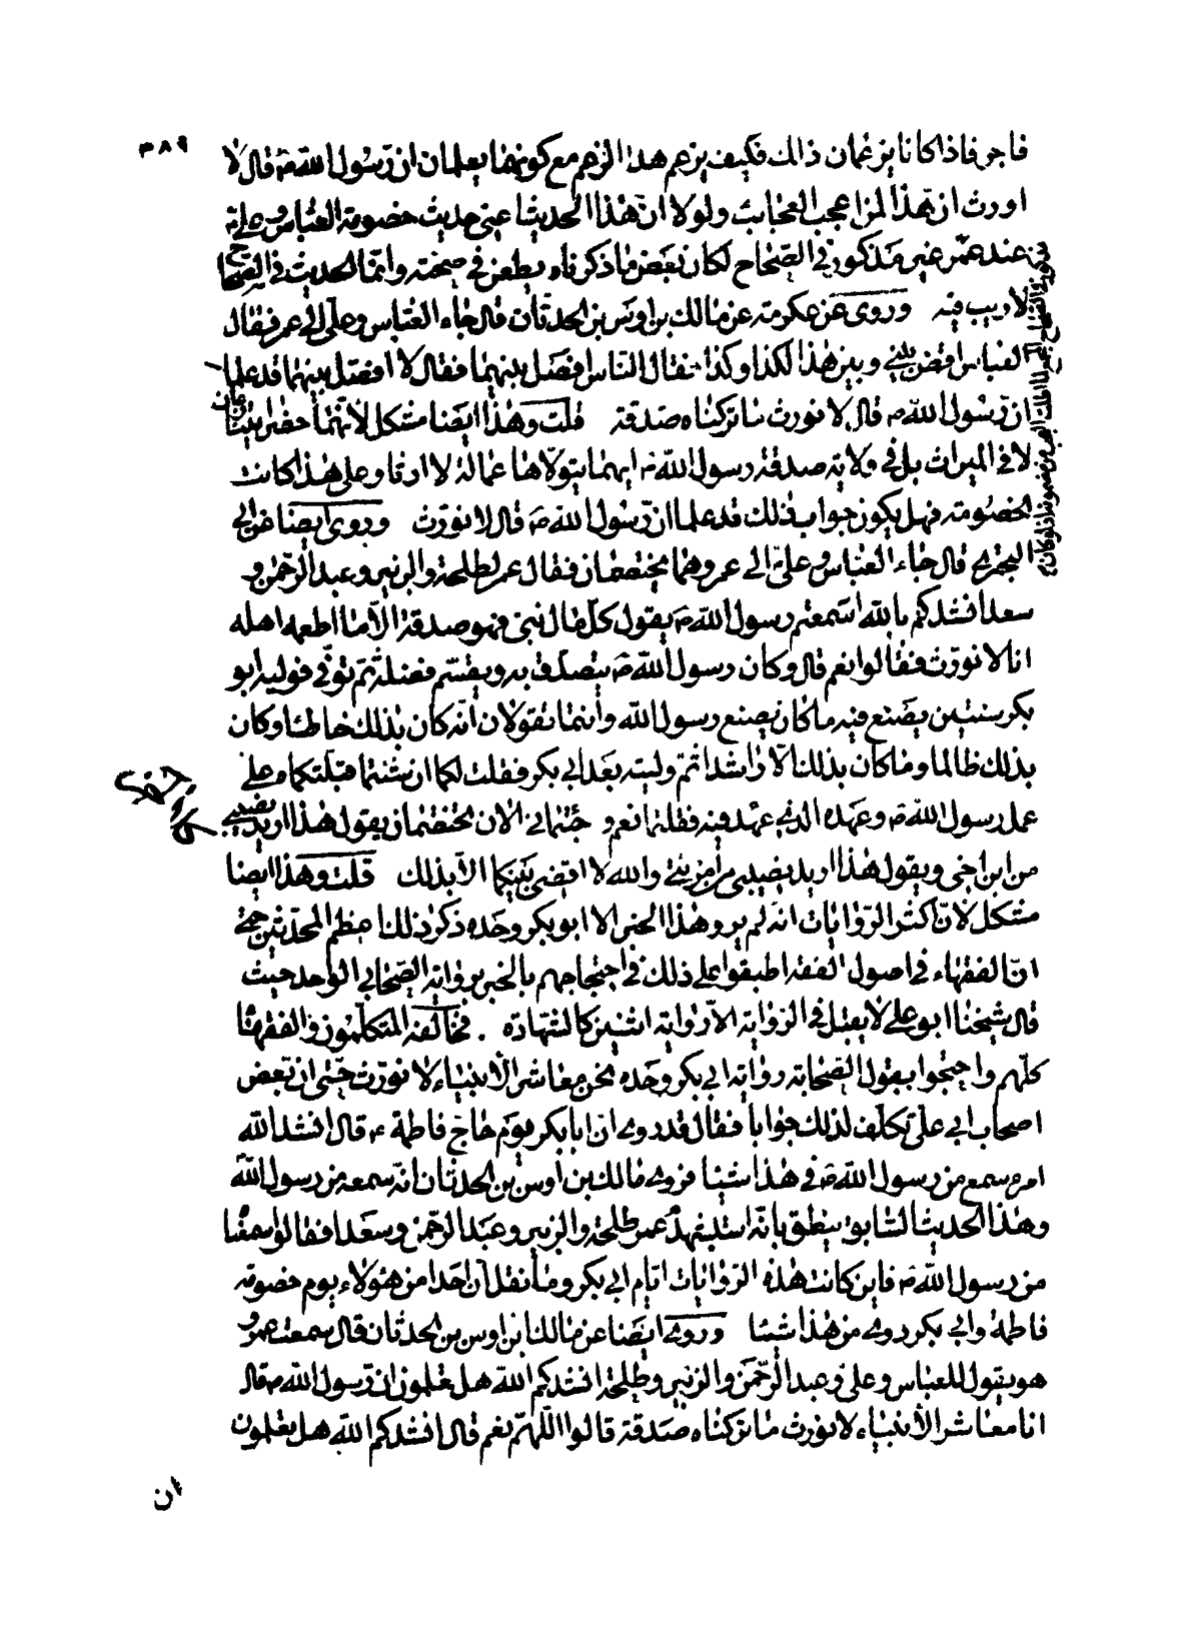 ٣٨٩
فاجر فاذا كانا يزعمان ذالك فكيف يزعم هذا الزعم مع كونهما يعلمان ان رسول الله ص قال لا
اورث ان هذا لمن اعجب العجائب ولولا ان هذا الحديث اعنى حديث خصومة العباس وعلى
عند عمر غير مذكور فى الصحاح لكان بعض ما ذكرناه يطعن فى صحته وانما الحديث فى الصحاح
لا ريب فيه وروى عن عكرمة عن مالك بن اوس بن الحدثان قال جاء العباس وعلى الى عمر فقال
العباس اقض بينى وبين هذا الكذا وكذا فقال الناس افصل بينهما فقال لا افصل بينهما قد علما
ان رسول الله ص قال لا نورث ما تركناه صدقة قلت وهذا ايضا مشكل لانهما حضرا يتنازعان
لا فى الميراث بل فى ولاية صدقة رسول الله ص ايهما يتولاها عمالة لا ارثا وعلى هذا كانت
الخصومة فهل يكون جواب ذلك قد علما ان رسول الله ص قال لا نورث وروى ايضا عن ابى
البخترى قال جاء العباس وعلى الى عمر وهما يختصمان فقال عمر لطلحة والزبير وعبد الرحمن و
سعد انشدكم بالله اسمعتم رسول الله ص يقول كل مال نبى فهو صدقة الا ما اطعمه اهله
انا لا نورث فقالوا نعم قال وكان رسول الله ص يتصدق به ويقسم فضله ثم توفى فوليه ابو
بكر سنتين يصنع فيه ما كان يصنع رسول الله وانتما تقولان انه كان بذلك خاطئا وكان
بذلك ظالما وما كان بذلك الا راشدا ثم وليته بعد ابى بكر فقلت لكما ان شئتما قبلتكما على
عمل رسول الله ص وعهده الذى عهد فيه فقلتما نعم و جئتمانى الان تختصمان يقول هذا اريد نصيبى
من ابن اخى ويقول هذا اريد نصيبى من امرأتى والله لا اقضى بينكما الا بذلك قلت وهذا ايضا
مشكل لان اكثر الروايات انه لم يرو هذا الخبر الا ابو بكر وحده ذكر ذلك اعظم المحدثين حتى
ان الفقهاء فى اصول الفقه اطبقوا على ذلك فى احتجاجهم بالخبر برواية الصحابى الواحد حيث
قال شيخنا ابو على لا يقبل فى الرواية الا رواية اثنين كالشهادة . فخالفه المتكلمون والفقهاء
كلهم واحتجوا بقول الصحابة رواية ابى بكر وحده نحن معاشر الانبياء لا نورث حتى ان بعض
اصحاب ابى على تكلف لذلك جوابا فقال قد روى ان ابا بكر يوم حاج فاطمة ع قال انشد الله
امرء سمع من رسول الله ص فى هذا شيئا فروى مالك بن اوس بن الحدثان انه سمعه من رسول الله
وهذا الحديث السابق ينطق بانه استشهد عمر طلحة والزبير وعبد الرحمن وسعدا فقالوا سمعنا
من رسول الله ص فاين كانت هذه الروايات ايام ابى بكر وما نقل ان احدا من هؤلاء يوم خصومة
فاطمة وابى بكر روى من هذا شيئا وروى ايضا عن مالك ابن اوس بن الحدثان قال سمعت عمر و
هو يقول للعباس وعلى وعبد الرحمن والزبير وطلحة انشدكم الله هل تعلمون ان رسول الله ص قال
انا معاشر الانبياء لا نورث ما تركناه صدقة قالوا اللهم نعم قال انشدكم الله هل تعلمون
ان